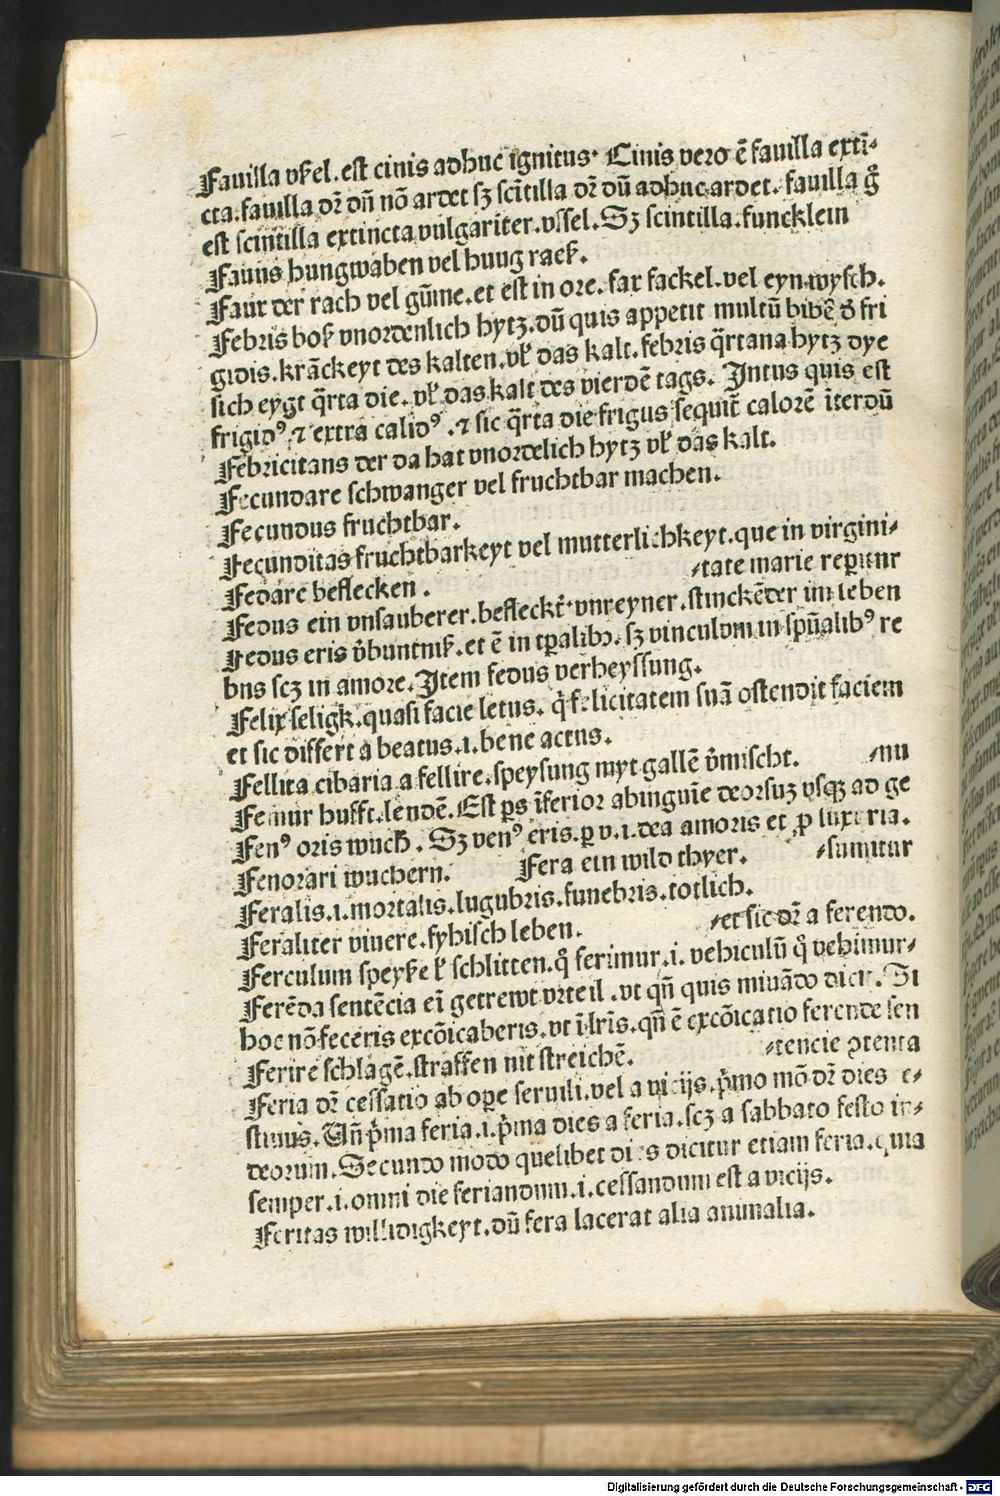 Fauilla vſel. eſt cinis adhuc ignitus· Cinis vero ē fauilla exti̅⸗
cta. fauilla dr̄ dū nō ardet ſꝫ ſcītilla dr̄ dū adhuc ardet. fauilla g̊
eſt ſcintilla extincta vulgariter. vſſel. Sꝫ ſcintilla. funcklein
Fauus hungwaben vel huug raeß.
Faux der rach vel gūme. et eſt in ore. fax fackel. vel eyn wyſch.
Febris boß vnordenlich hytz. dū quis appetit multū bibē ð fri
gidis. krāckeyt des kalten. vß das kalt. febris q̄rtana hytz dye
ſich eygt q̄rta die. vß das kalt des vierdē tags. Intus quis eſt
frigidꝰ. ⁊ extra calidꝰ. ⁊ ſic q̄rta die frigus ſequit̄ calorē īterdū
Febricitans der da hat vnordelich hytz vß das kalt.
Fecundare ſchwanger vel fruchtbar machen.
Fecundus fruchtbar.
Fecunditas fruchtbarkeyt vel mutterlichkeyt. que in virgini⸗
Fedare beflecken. ⸗tate marie reꝑitur
Fedus ein vnſauberer. befleckt̄· vnreyner. ſtinckēder im leben
Fedus eris v̄buntniß. et ē in tꝑalibꝫ. ſꝫ vinculum in ſpūalibꝰ re
bus ſcꝫ in amore. Item fedus verheyſſung.
Felix ſeligk. quaſi facie letus. q̇ felicitatem ſuā oſtendit faciem
et ſic differt a beatus. i. bene actus.
Fellita cibaria a fellire. ſpeyſung myt gallē v̄miſcht. ⸗nu
Femur hufft. lendē. Eſt ꝑs īferior abinguīe deorſuꝫ vſqꝫ ad ge
Fenꝰ oris wuch̄. Sꝫ venꝰ eris. ꝑ v. i. dea amoris et ꝓ luxuria.
Fenorari wuchern. Fera ein wild thyer. ⸗ſumitur
Feralis. i. mortalis. lugubris. funebris. totlich.
Feraliter viuere. fyhiſch leben. ⸗et ſic dr̄ a ferendo.
Ferculum ſpeyße ß ſchlitten. q̊ ferimur. i. vehiculū q̊ vehimur⸗
Ferēda ſentēcia ei̅ getrewt vrteil. vt qn̄ quis miuādo dicit. Si
hoc nō feceris excōicaberis. vt ī lr̄is. qn̄ ē excōicatio ferende ſen
Ferire ſchlagē. ſtraffen nit ſtreichē. ⸗tencie ꝓtenta
Feria dr̄ ceſſatio ab oꝑe ſeruili. vel a vicijs. p̄mo mō dr̄ dies fe⸗
ſtiuus. Vn̄ p̄ma feria. i. p̄ma dies a feria. ſcꝫ a ſabbato feſto iu⸗
deorum. Secundo modo quelibet dies dicitur etiam feria. quia
ſemper. i. omni die feriandum. i. ceſſandum eſt a vicijs.
Feritas willidigkeyt. dū fera lacerat alia animalia.
Digitalisierung gefördert durch die Deutsche Forschungsgemeinschaft - DFG